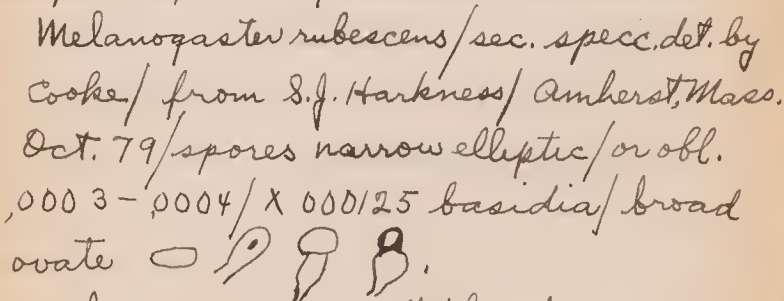 Melanogaster rubescens/sec. specc. det. by
Cooke/ from S.J. Harkness/ Amherst, Mass.
Oct. 79/spores narrow elliptic/or obl.
,000 3 - ,0004/ X 000125 basidia/ broad
ovate .